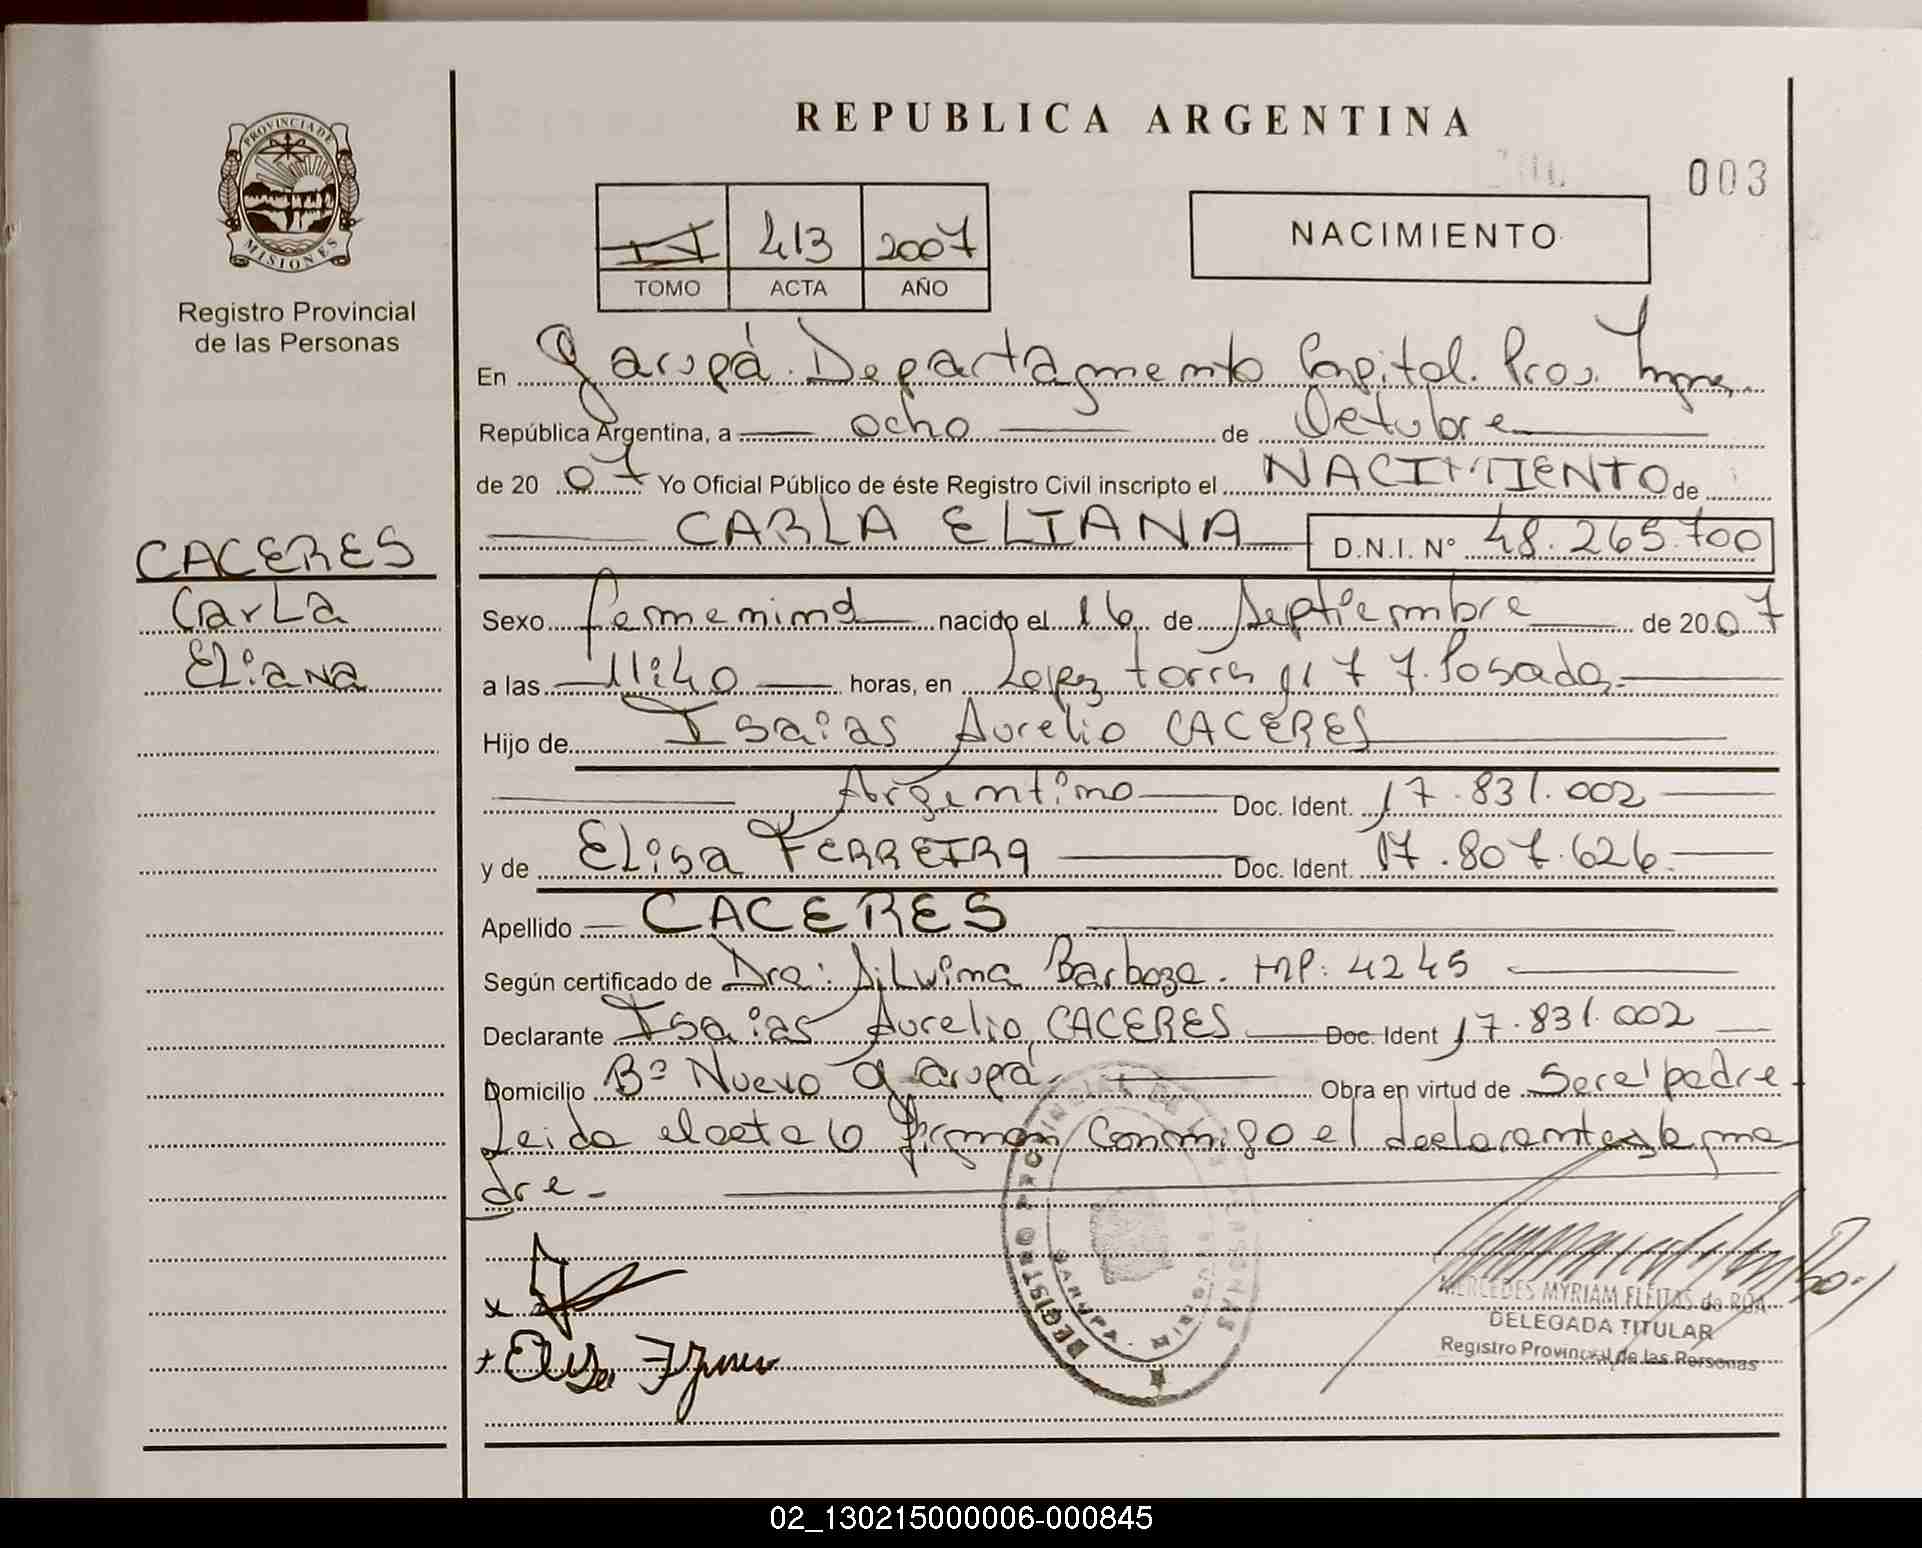 REPUBLICA ARGENTINA
003
PROVINCIA DE
MISIONES
Registro Provincial
de las Personas
II 413 2007
TOMO ACTA AÑO
NACIMIENTO
En Garupá. Departamento Capital. Prov. Mnes.
República Argentina, a ocho de Octubre
de 2007 Yo Oficial Público de éste Registro Civil inscripto el NACIMIENTO de
CARLA ELIANA D.N.I. Nº 48.265.700
CACERES
Carla
Eliana
Sexo femenino nacido el 16 de Septiembre de 2007
a las 11:40 horas, en Lopez torres 1177. Posadas.
Hijo de Isaias Aurelio CACERES
Argentino Doc. Ident. 17.831.002
y de Elisa FERREIRA Doc. Ident. 17.807.626.
Apellido CACERES
Según certificado de Dra: Silvina Barboza. MP: 4245
Declarante Isaias Aurelio CACERES Doc. Ident 17.831.002
Domicilio Bº Nuevo Garupá. Obra en virtud de Ser el padre
Leida el acta la firman conmigo el declarante y la ma
dre-
x
+ Elisa
REGISTRO PROVINCIAL DE LAS PERSONAS
GARUPA
MISIONES
MERCEDES MYRIAM FLEITAS de ROA
DELEGADA TITULAR
Registro Provincial de las Personas
02_130215000006-000845